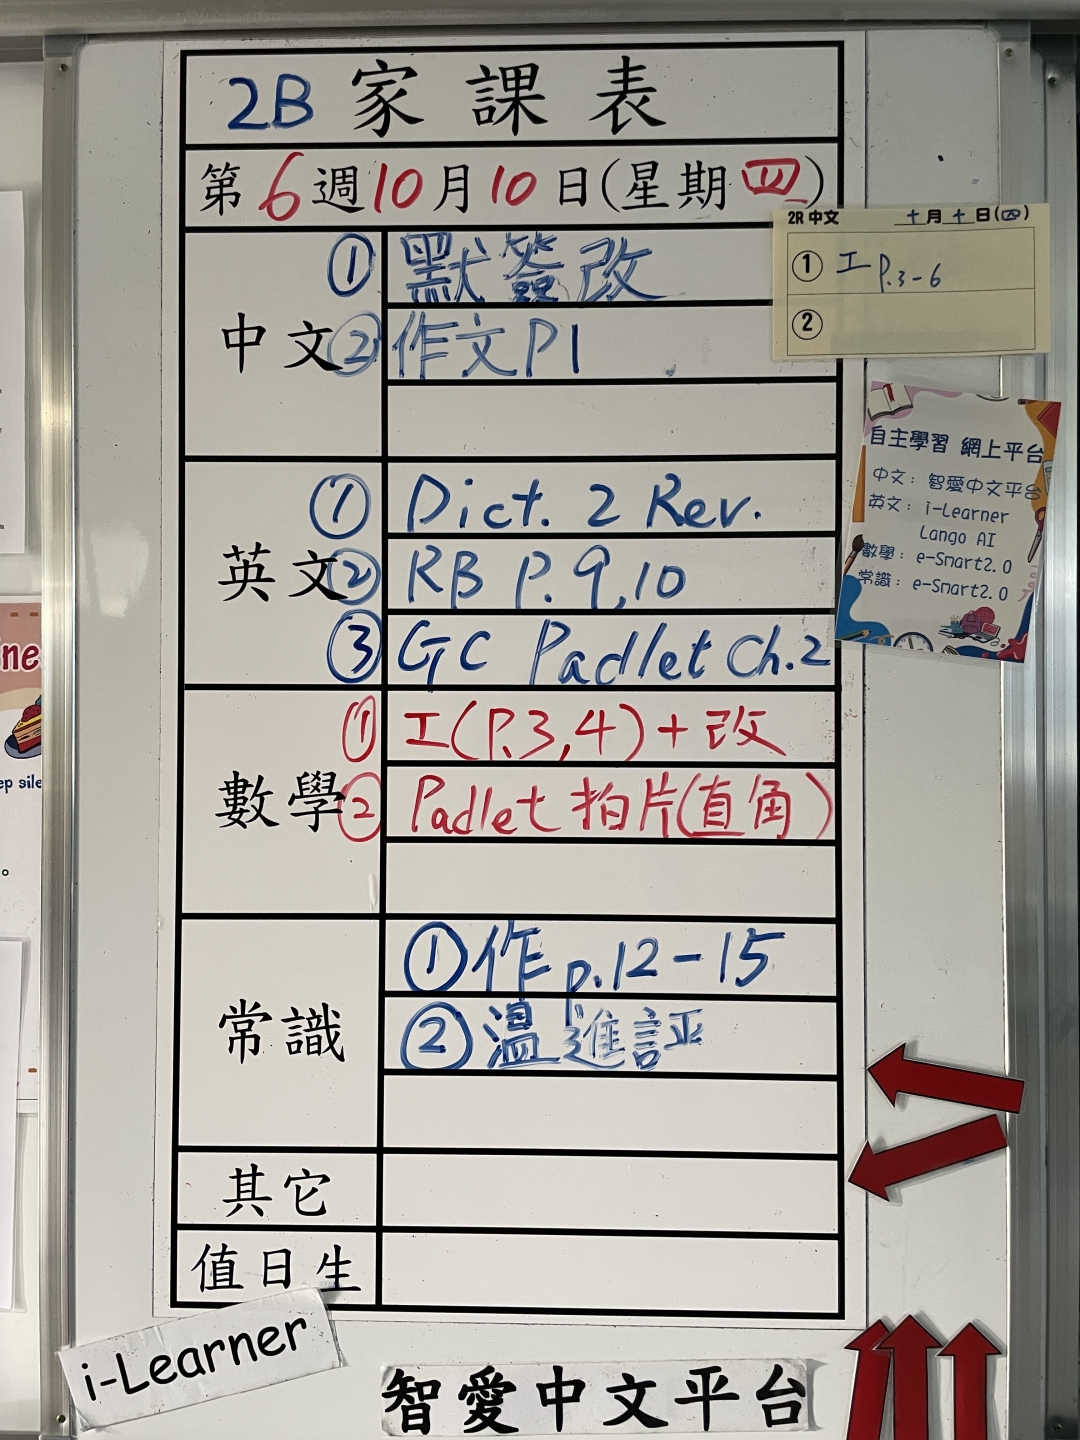 2B 家課表
第 6 週 10 月 10 日(星期 四)
中文
① 默簽改
② 作文P1
2R 中文 十月十日(四)
① 工 P.3-6
②
英文
① Dict. 2 Rev.
② RB P. 9, 10
③ GC Padlet Ch.2
自主學習 網上平台
中文：智愛中文平台
英文：i-Learner
Lango AI
數學：e-Smart2.0
常識：e-Smart2.0
數學
① 工(P.3,4)+改
② Padlet 拍片(直角)
常識
① 作 p.12-15
② 溫進評
其它
值日生
i-Learner
智愛中文平台
ne
ep sile